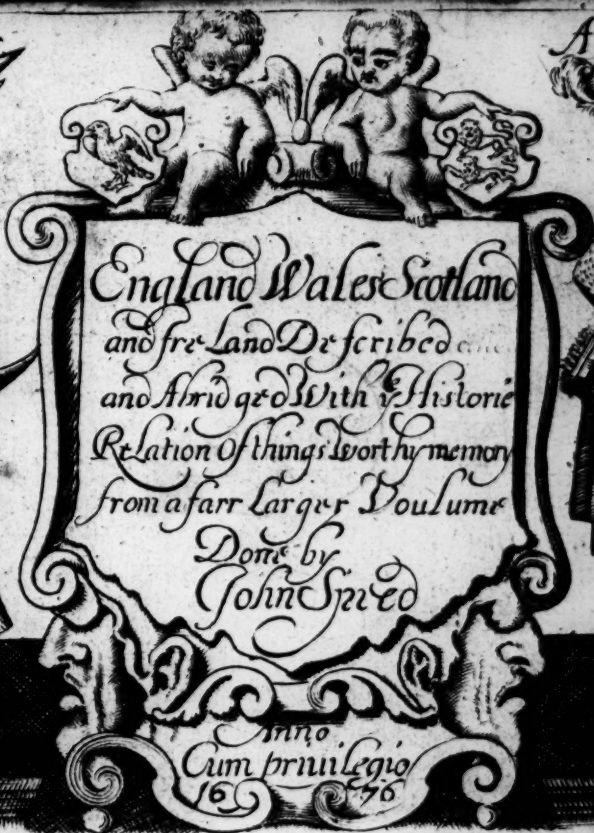 England Wales Scotland
and Ireland Described
and Abridged With yͤ Historie
Relation Of things Worthy memory
from a farr larger Voulume
Done by
John Speed
Anno
Cum priuilegio
1676